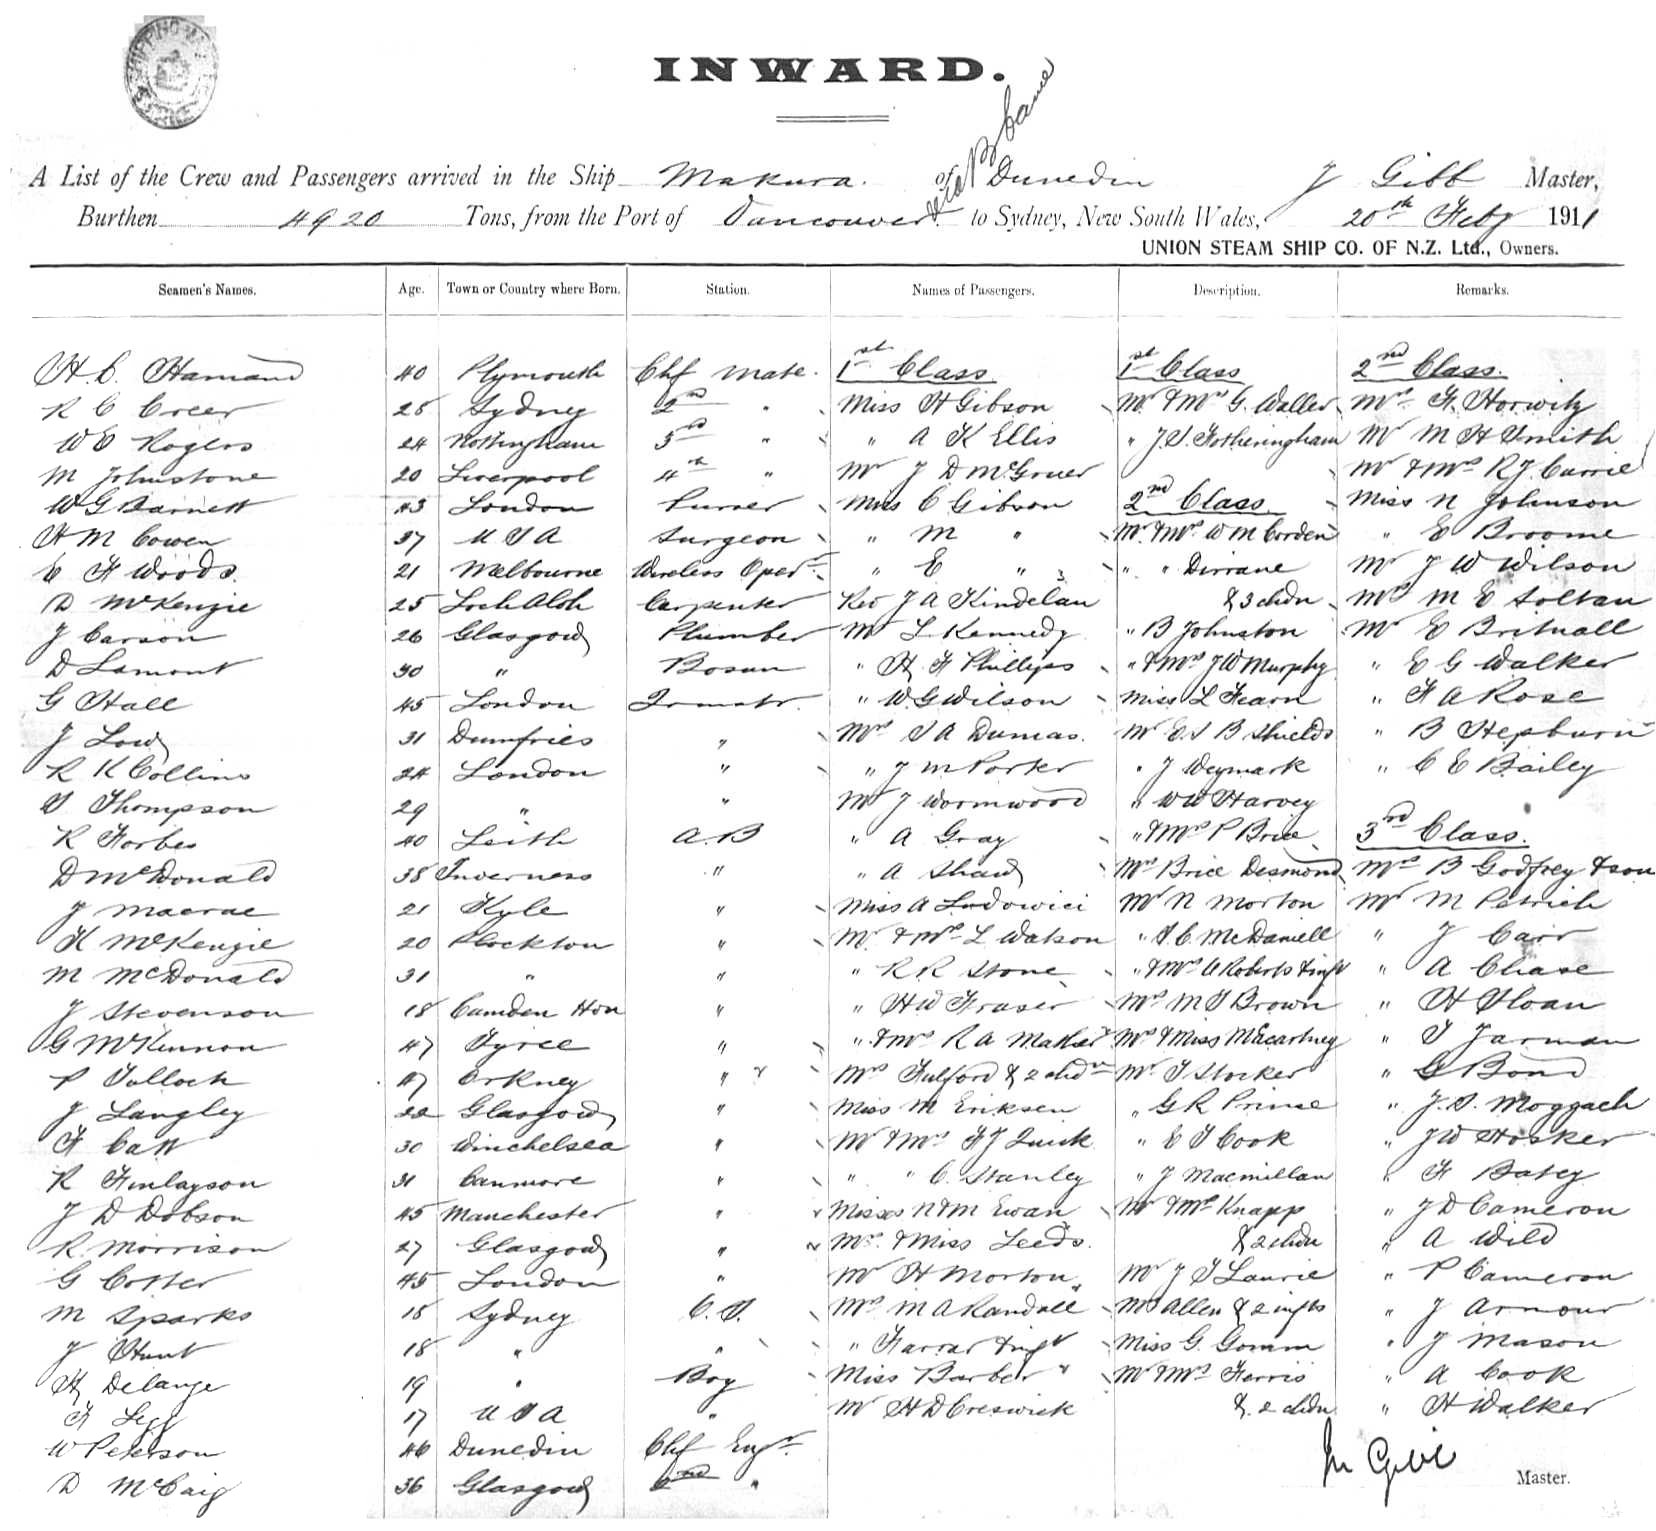 INWARD.
via Brisbane
A List of the Crew and Passengers arrived in the Ship Makura. of Dunedin J Gibb Master,
Burthen 4920 Tons, from the Port of Vancouver to Sydney, New South Wales, 20th Feby 1911
UNION STEAM SHIP CO. OF N.Z. Ltd., Owners.
Seamen's Names. Age. Town or Country where Born. Station. Names of Passengers. Description. Remarks.
40 Plymouth Chf Mate. 1st Class 1st Class 2nd Class.
R C Creer 28 Sydney 2nd " Miss H Gibson Mr & Mrs G. Waller Mrs F. Horwitz
W E Rogers 24 Nottingham 3rd " " A K Ellis " J.S. Fotheringham Mr M H Smith
M Johnstone 20 Liverpool 4th " Mr J D McGruer Mr & Mrs R J. Currie
W G Barnett 43 London Purser Miss C Gibson 2nd Class Miss N Johnson
H M Cowen 37 U S A Surgeon " M " Mr & Mrs W M Corden " E Broome
C F Woods. 21 Melbourne Wireless Oper. " E " " " Dirrane Mr J W Wilson
D McKenzie 25 Loch Alsh Carpenter Rev J A Kindelan & 3 chdn Mrs M E Soltau
J Carson 26 Glasgow Plumber Mr L Kennedy " B Johnston Mr E Britnall
D Lamont 30 " Bosun " H F Phillips " & Mrs J W Murphy " E G Walker
G Hall 45 London " W. G Wilson Miss L Fearn " F A Rose
J Low 31 Dumfries " Mrs S A Dumas. Mr E. S B Shields " B Hepburn
R K Collins 24 London " " J M Porter " J Weymark " C E Bailey
S Thompson 29 " " Mr J Wormwood " W W Harvey
R Forbes 40 Leith A.B " A Gray " & Mrs P Brice 3rd Class.
D McDonald 38 Inverness " " A Shaw Mrs Brice Desmond Mrs B Godfrey & son
J Macrae 21 Kyle " Miss A Ludowici Mr N Morton Mr M Petrich
K McKenzie 20 Plockton " Mr & Mrs L Watson " S. C. McDaniell " J Carr
M McDonald 31 " " " R R Stone " & Mrs A Roberts & inft " A Chase
J Stevenson 18 Camden Hon " " H W Fraser Mrs M S Brown " H Sloan
G McKinnon 47 Tyree " " & Mrs R A Mrs & Miss McCartney " S Jarman
P Tulloch 47 Orkney " Mrs Fulford & 2 chdn Mr T Stocker " G Bond
J Langley 22 Glasgow " Miss M Eriksen " G R Prince " J. S. Moggach
F Catt 30 Winchelsea " Mr & Mrs F J Quick " E T Cook " J W Hosker
R Finlayson 31 Canmore " " " C. Stanley " J Macmillan " F Batey
J D Dobson 45 Manchester " Misses N & M Ewan Mr & Mrs Knapp " J D Cameron
R. Morrison 27 Glasgow " Mrs. & Miss Leeds. & 2 chdn " A Wild
G Cotter 45 London " Mr H Morton Mr J S Laurie " P Cameron
M Sparks 18 Sydney O. S. Mrs M A Randall Mrs Allen & 2 infts " J Armour
J Hunt 18 " " " Farrar & inft Miss G. Gomm " J Mason
H Delange 19 " Boy Miss Barber Mr & Mrs Ferris " A Cook
F Legg 17 U S A " Mr H D Creswick & 2 chdn " H Walker
W Peterson 46 Dunedin Chf Engr.
D McCaig 36 Glasgow 2nd "
Jn Gibb Master.